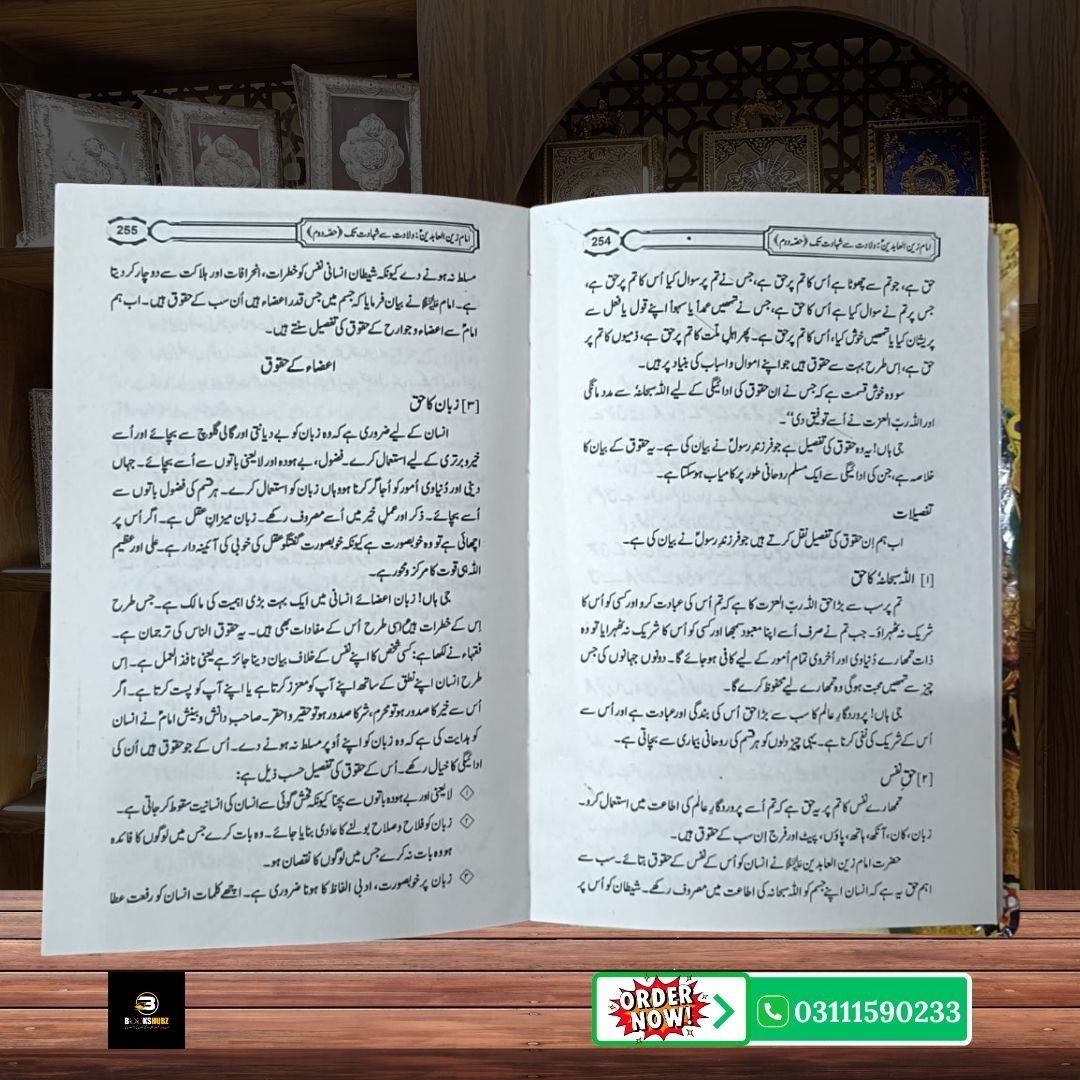 254
امام زین العابدینؑ: ولادت سے شہادت تک (حصہ دوم)
حق ہے، جو تم سے چھوٹا ہے اُس کا تم پر حق ہے، جس نے تم پر سوال کیا اُس کا تم پر حق ہے،
جس پر تم نے سوال کیا ہے اُس کا حق ہے، جس نے تمھیں عمداً یا سہواً اپنے قول یا فعل سے
پریشان کیا یا تمھیں خوش کیا، اُس کا تم پر حق ہے۔ پھر اہلِ ملّت کا تم پر حق ہے، ذمیوں کا تم پر
حق ہے، اِس طرح بہت سے حقوق ہیں جو اپنے اموال و اسباب کی بنیاد پر ہیں۔
سو وہ خوش قسمت ہے کہ جس نے ان حقوق کی ادائیگی کے لیے اللہ سبحانہٗ سے مدد مانگی
اور اللہ ربّ العزت نے اُسے توفیق دی‘‘۔
جی ہاں! یہ وہ حقوق کی تفصیل ہے جو فرزندِ رسولؐ نے بیان کی ہے۔ یہ حقوق کے بیان کا
خلاصہ ہے، جن کی ادائیگی سے ایک مسلم روحانی طور پر کامیاب ہو سکتا ہے۔
تفصیلات
اب ہم اِن حقوق کی تفصیل نقل کرتے ہیں جو فرزندِ رسولؐ نے بیان کی ہے۔
[۱] اللہ سبحانہٗ کا حق
تم پر سب سے بڑا حق اللہ ربّ العزت کا ہے کہ تم اُس کی عبادت کرو اور کسی کو اُس کا
شریک نہ ٹھہراؤ۔ جب تم نے صرف اُسے اپنا معبود سمجھا اور کسی کو اُس کا شریک نہ ٹھہرایا تو وہ
ذات تمھارے دُنیاوی اور اُخروی تمام اُمور کے لیے کافی ہو جائے گا۔ دونوں جہانوں کی جس
چیز سے تمھیں محبت ہو گی وہ تمھارے لیے محفوظ کرے گا۔
جی ہاں! پروردگارِ عالم کا سب سے بڑا حق اُس کی بندگی اور عبادت ہے اور اُس سے
اُس کے شریک کی نفی کرنا ہے۔ یہی چیز دلوں کو ہر قسم کی روحانی بیماری سے بچاتی ہے۔
[۲] حقِ نفس
تمھارے نفس کا تم پر یہ حق ہے کہ تم اُسے پروردگارِ عالم کی اطاعت میں استعمال کرو۔
زبان، کان، آنکھ، ہاتھ، پاؤں، پیٹ اور فرج اِن سب کے حقوق ہیں۔
حضرت امام زین العابدین علیہ السلام نے انسان کو اُس کے نفس کے حقوق بتائے۔ سب سے
اہم حق یہ ہے کہ انسان اپنے جسم کو اللہ سبحانہ کی اطاعت میں مصروف رکھے۔ شیطان کو اُس پر
255
امام زین العابدینؑ: ولادت سے شہادت تک (حصہ دوم)
مسلط نہ ہونے دے کیونکہ شیطان انسانی نفس کو خطرات، انحرافات اور ہلاکت سے دوچار کر دیتا
ہے۔ امام علیہ السلام نے بیان فرمایا کہ جسم میں جس قدر اعضاء ہیں اُن سب کے حقوق ہیں۔ اب ہم
امامؑ سے اعضاء و جوارح کے حقوق کی تفصیل سنتے ہیں۔
اعضاء کے حقوق
[۳] زبان کا حق
انسان کے لیے ضروری ہے کہ وہ زبان کو بے دیانتی اور گالی گلوچ سے بچائے اور اُسے
خیر و برتری کے لیے استعمال کرے۔ فضول، بے ہودہ اور لایعنی باتوں سے اُسے بچائے۔ جہاں
دینی اور دُنیاوی اُمور کو اُجاگر کرنا ہو وہاں زبان کو استعمال کرے۔ ہر قسم کی فضول باتوں سے
اُسے بچائے۔ ذکر اور عملِ خیر میں اُسے مصروف رکھے۔ زبان میزانِ عقل ہے۔ اگر اُس پر
اچھائی ہے تو وہ خوبصورت ہے کیونکہ خوبصورت گفتگو عقل کی خوبی کی آئینہ دار ہے۔ علی اور عظیم
اللہ ہی قوت کا مرکز و محور ہے۔
جی ہاں! زبان اعضائے انسانی میں ایک بہت بڑی اہمیت کی مالک ہے۔ جس طرح
اِس کے خطرات ہیں اسی طرح اُس کے مفادات بھی ہیں۔ یہ حقوق الناس کی ترجمان ہے۔
فقہاء نے لکھا ہے: کسی شخص کا اپنے نفس کے خلاف بیان دینا جائز ہے یعنی نافذ العمل ہے۔ اِس
طرح انسان اپنے نطق کے ساتھ اپنے آپ کو معزز کرتا ہے یا اپنے آپ کو پست کرتا ہے۔ اگر
اُس سے خیر کا صدور ہو تو محترم، شر کا صدور ہو تو حقیر و احقر۔ صاحبِ دانش و بینش امامؑ نے انسان
کو ہدایت کی ہے کہ وہ زبان کو اپنے اُوپر مسلط نہ ہونے دے۔ اُس کے جو حقوق ہیں اُن کی
ادائیگی کا خیال رکھے۔ اُس کے حقوق کی تفصیل حسب ذیل ہے:
۱ لایعنی اور بے ہودہ باتوں سے بچنا کیونکہ فحش گوئی سے انسان کی انسانیت سقوط کر جاتی ہے۔
۲ زبان کو فلاح و صلاح بولنے کا عادی بنایا جائے۔ وہ بات کرے جس میں لوگوں کا فائدہ
ہو وہ بات نہ کرے جس میں لوگوں کا نقصان ہو۔
۳ زبان پر خوبصورت، ادبی الفاظ کا ہونا ضروری ہے۔ اچھے کلمات انسان کو رفعت عطا
BOOKSHUBZ
ORDER
NOW!
03111590233